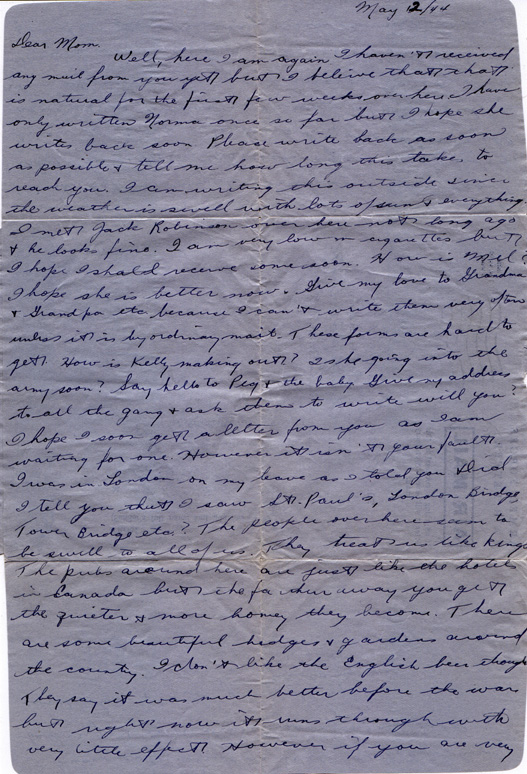 May 12/44
Dear Mom.
Well, here I am again I haven't received
any mail from you yet but I beleive that that
is natural for the first few weeks over here I have
only written Norma once so far but I hope she
writes back soon Please write back as soon
as possible & tell me how long this take, to
reach you. I am writing this outside since
the weather is swell with lots of sun & everything.
I met Jack Robinson over here not long ago
& he looks fine. I am very low on cigarettes but
I hope I shald receive some soon. How is Mel?
I hope she is better now. Give my love to Grandma
& Grandpa etc because I can't write them very often
unless it is by ordinary mail. These forms are hard to
get. How is Kelly making out? Is he going into the
army soon? Say hello to Peg & the baby Give my address
to all the gang & ask them to write will you?
I hope I soon get a letter from you as I am
waiting for one. However it isn't your fault.
I was in London on my leave as I told you & did
I tell you that I saw St. Paul's, London Bridge,
Tower Bridge etc? The people over here seem to
be swell to all of us. They, treat us like kings
The pubs around here are just like the hotels
in Canada but the farthur away you get
the quieter & more homey they become. There
are some beautiful hedges & gardens around
the country. I don't like the English beer though
They say it was much better before the war
but right now it runs through with
very little effect However if you are very